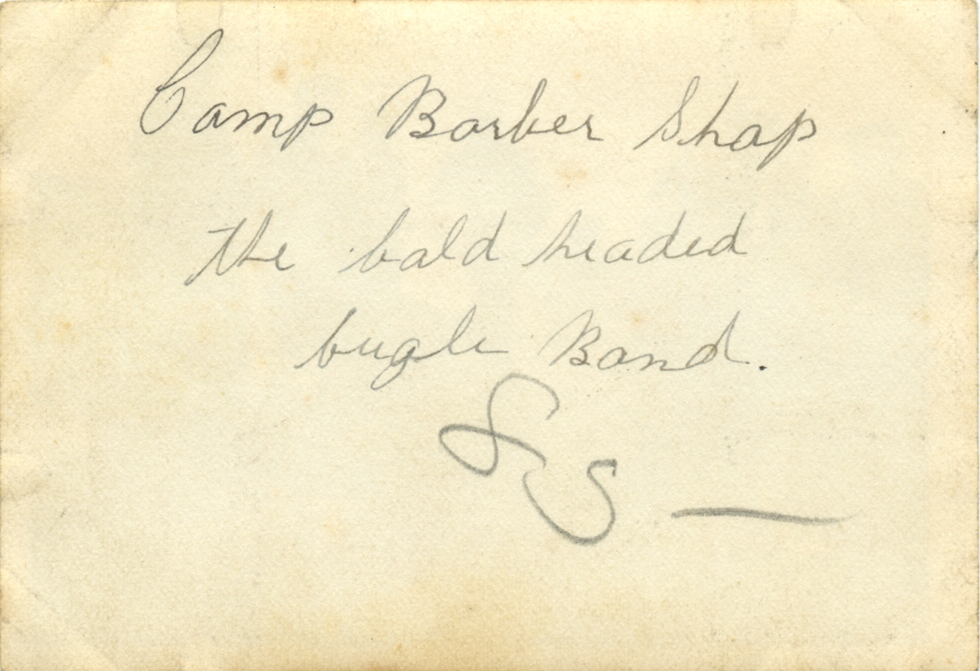 Camp Barber Shap
the bald headed
bugle Band.